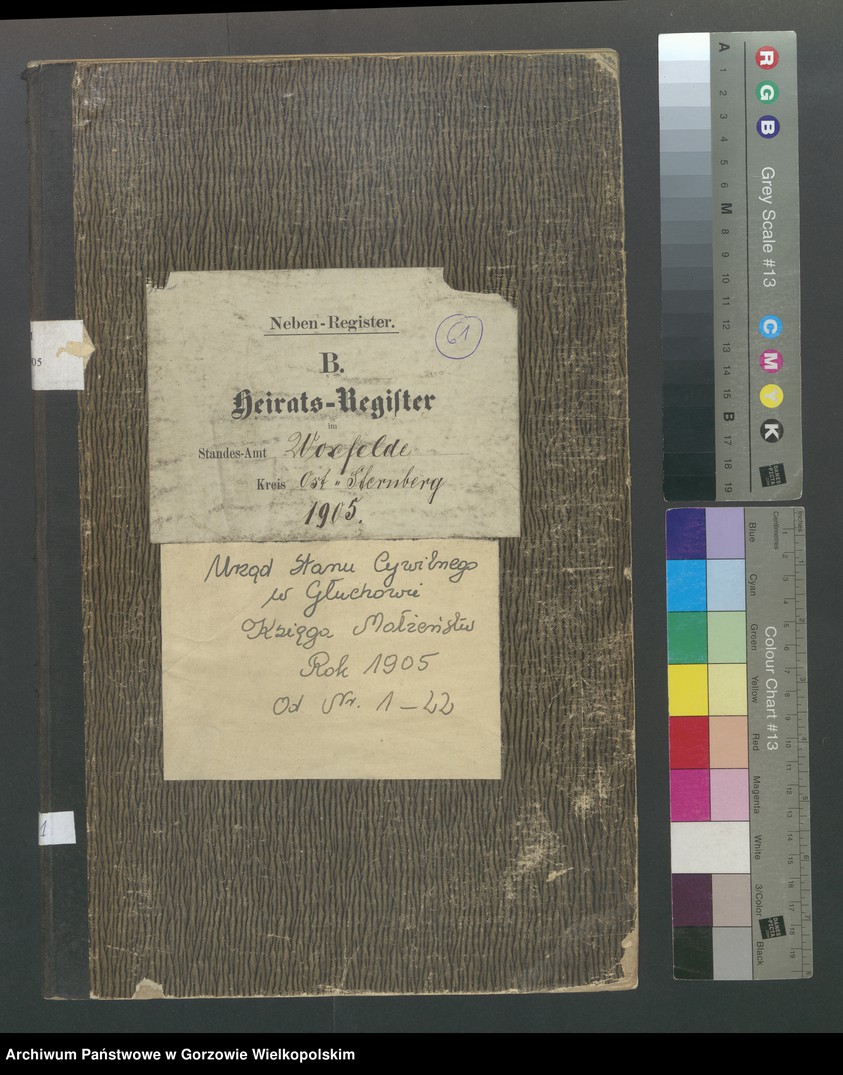 Neben-Register.
61
B.
Heirats-Regiſter
im
Standes-Amt Woxfelde
Kreis Ost-Sternberg
1905.
Urząd Stanu Cywilnego
w Głuchowie
Księga Małżeństw
Rok 1905
Od Nr. 1-22
05
1
A 1 2 3 4 5 6 M 8 9 10 11 12 13 14 15 B 17 18 19
R G B
Grey Scale #13
C M Y K
DANES
PICTA
Blue
Cyan
Green
Yellow
Red
Magenta
White
3/Color
Black
Colour Chart #13
Centimetres
Inches
1 2 3 4 5 6 7 8 9 10 11 12 13 14 15 16 17 18 19
1 2 3 4 5 6 7 8
DANES
PICTA
Archiwum Państwowe w Gorzowie Wielkopolskim